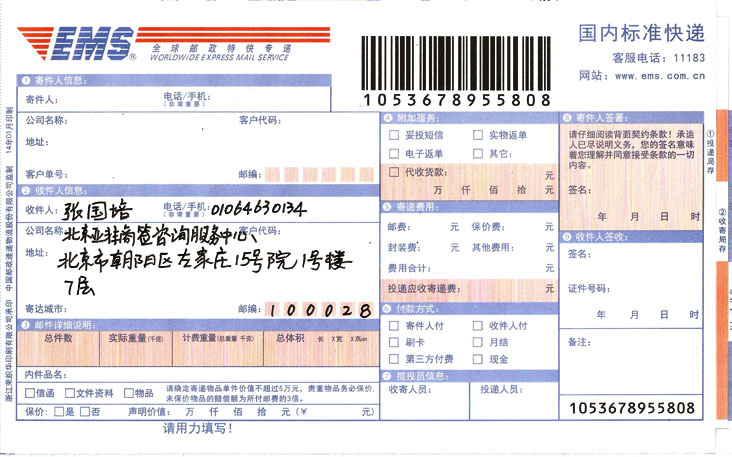 EMS®
全球邮政特快专递
WORLDWIDE EXPRESS MAIL SERVICE
1053678955808
国内标准快递
客服电话：11183
网站：www.ems.com.cn
① 寄件人信息：
寄件人： 电话/手机：
（非常重要）
公司名称： 客户代码：
地址：
客户单号： 邮编：
② 收件人信息：
收件人：张国培 电话/手机：01064630134
（非常重要）
公司名称：北京亚科商签咨询服务中心、 客户代码：
地址：北京市朝阳区左家庄15号院1号楼
7层
寄达城市： 邮编：100028
③ 邮件详细说明：
总件数 实际重量(千克) 计费重量(总重量 千克) 总体积 长 X宽 X高cm
内件品名：
□信函 □文件资料 □物品 请确定寄递物品单件价值不超过5万元，贵重物品务必保价，
未保价物品的赔偿额为所付邮费的3倍。
保价：□是 □否 声明价值： 万 仟 佰 拾 元（¥ 元）
请用力填写！
④ 附加服务：
□ 妥投短信 □ 实物返单
□ 电子返单 □ 其它：
□ 代收货款： 元
万 仟 佰 拾 元
⑤ 寄递费用：
邮费： 元 保价费： 元
封装费： 元 其他费用： 元
费用合计： 元
投递应收寄递费： 元
⑥ 付款方式：
□ 寄件人付 □ 收件人付
□ 刷卡 □ 月结
□ 第三方付费 □ 现金
⑦ 揽投员信息：
收寄人员： 投递人员：
⑧ 寄件人签署：
请仔细阅读背面契约条款！承运
人已尽说明义务，您的签名意味
着您理解并同意接受条款的一切
内容。
签名：
年 月 日 时
⑨ 收件人签收：
签名：
证件号码：
年 月 日 时
备注：
1053678955808
①投递局存
②收寄局存
14年01月印制
中国邮政速递物流股份有限公司监制
浙江茉织华印刷有限公司承印